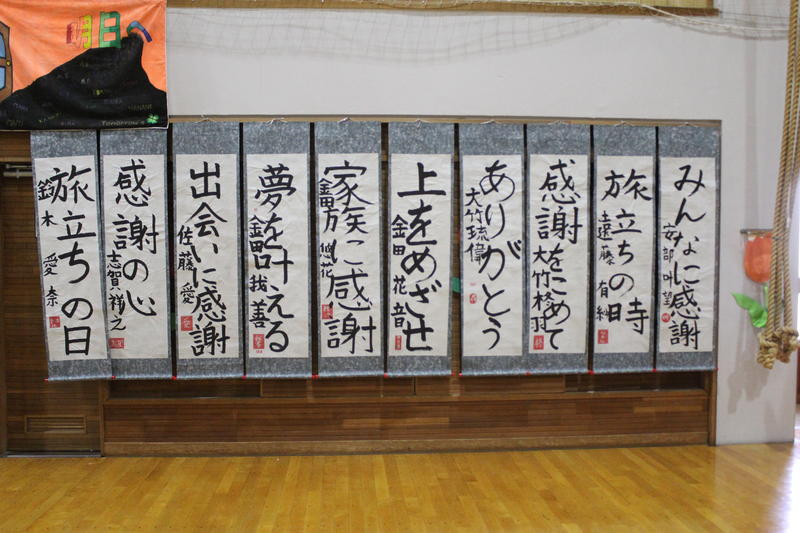 みんなに感謝
安部叶望
旅立ちの時
遠藤有紗
感謝をこめて
大竹柊羽
ありがとう
大竹琉偉
上をめざせ
金田花音
家族に感謝
金田悠花
夢を叶える
金田哉善
出会いに感謝
佐藤愛
感謝の心
志賀祥之
旅立ちの日
鈴木愛奈
明日へ
Tomorrow's